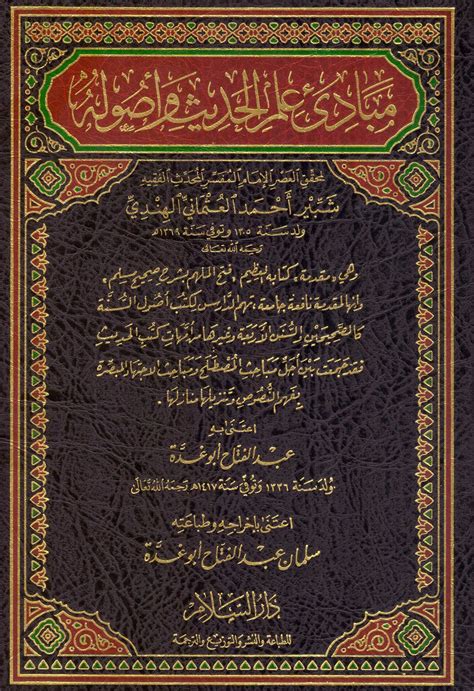 مبادئ علم الحديث وأصوله
لمحقق العصر الإمام المفسر المحدث الفقيه
شبير أحمد العثماني الهندي
ولد سنة ١٣٠٥ وتوفي سنة ١٣٦٩هـ
رحمه الله تعالى
وهي «مقدمة» كتابه العظيم «فتح الملهم بشرح صحيح مسلم»
وإنها لمقدمة نافعة جامعة، تهم الدارس لكتب أصول السنة
كالصحيحين والسنن الأربعة وغيرها من أمهات كتب الحديث
فقد جمعت بين أجل مباحث المصطلح ومباحث الاجتهاد المبصرة
بفهم النصوص وتنزيلها منازلها.
اعتنى به
عبد الفتاح أبو غدة
ولد سنة ١٣٣٦ وتوفي سنة ١٤١٧هـ رحمه الله تعالى
اعتنى بإخراجه وطباعته
سلمان عبد الفتاح أبو غدة
دار السلام
للطباعة والنشر والتوزيع والترجمة